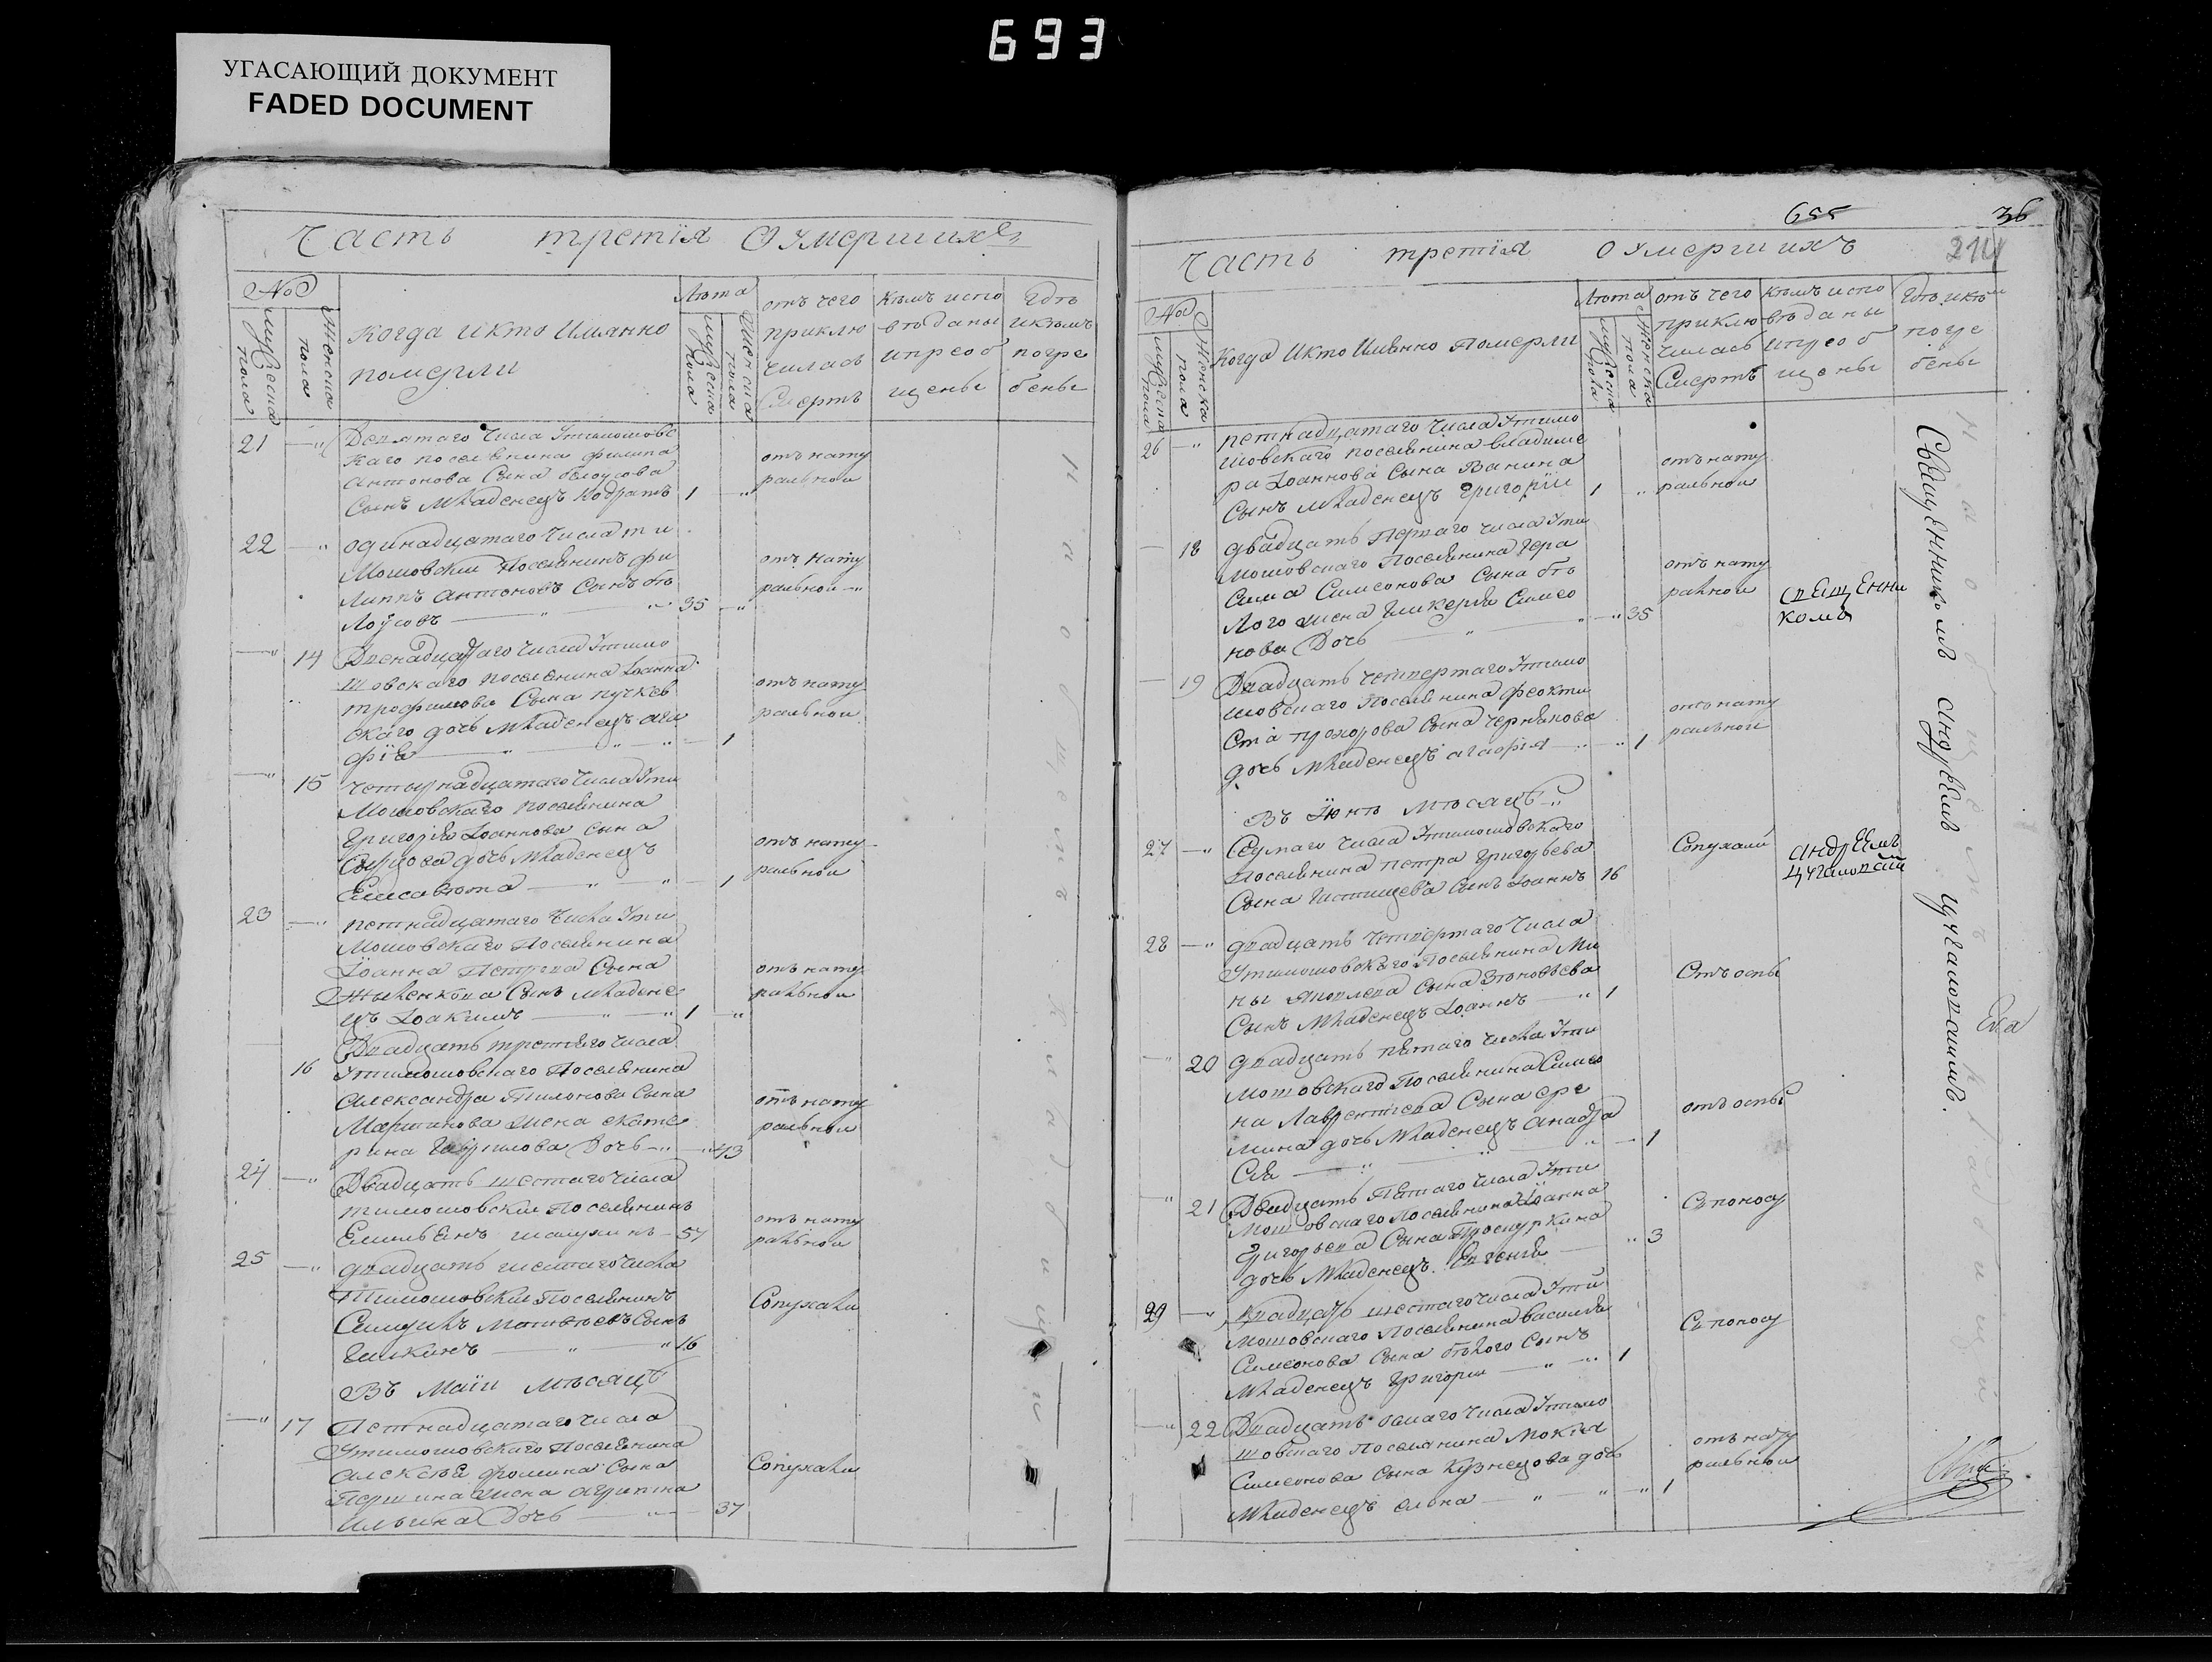 693
УГАСАЮЩИЙ ДОКУМЕНТ
FADED DOCUMENT
Часть третїя О Умершихъ
№
мужеска пола
Женска пола
Когда и кто Имянно
померли
Лѣта
мужеска пола
Женска пола
отъ чего
приклю
чилась
Смерть
кѣмъ испо
вѣданы
и преоб
щены
Гдѣ
и кѣмъ
погре
бены
21 Девятаго Числа Утимошовс
каго поселенина филипа
антонова Сына белоусова
Сынъ младенецъ кодратъ 1
отъ нату
ральной
22 одинадцатаго Числа ти
Мошовский Поселянинъ фи
липпъ антоновъ Сынъ бѣ
лоусовъ 35
отъ нату
ральной
14 Двенадцатаго Числа Утимо
шовскаго поселенина Іоанна
трофимова Сына пучков
скаго дочь младенецъ ага
фїя 1
отъ нату
ральной
15 четырнадцатаго Числа Ути
Мошовскаго поселянина
Григорія Іоаннова Сына
дочь младенецъ
Елисавета 1
отъ нату
ральной
23 петнадцатаго Числа Ути
Мошовскаго Поселянина
Іоанна Петрова Сына
Сынъ младене
цъ Іоакимъ 1
отъ нату
ральной
Двадцать третяго числа
16 Утимошовскаго Поселянина
Александра Сына
Мартинова жена екате
рина Гаврилова Дочь 43
отъ нату
ральной
24 Двадцать шестаго числа
тимошовский Поселянинъ
Емильянъ 57
отъ нату
ральной
25 двадцать шестаго числа
Тимошовский Поселянинъ
Матвѣевъ Сынъ
16
Сопухали
Въ Маїи мѣсяцѣ
17 Петнадцатаго числа
Утимошовскаго Поселянина
алексѣя фомина Сына
Першина жена агрипина
Ильина Дочь 37
Сопухали
и пообщены на кладбищи
655
36
214
Часть третїя о умершихъ
№
мужеска пола
Женска пола
Когда и кто Имянно Померли
Лѣта
мужеска пола
Женска пола
отъ чего
приклю
чилась
Смерть
кѣмъ испо
вѣданы
и преоб
щены
Гдѣ и кѣмъ
погре
бены
26 петнадцатаго числа Утимо
шовскаго поселянина владиме
ра Іоаннова Сына Ванина
Сынъ младенецъ Григорїи 1
отъ нату
ральной
18 двадцать Перваго числа Ути
мошовскаго Поселянина Гера
сима Симеонова Сына бѣ
лого жена Гликерія Симео
нова Дочь 35
отъ нату
ральной
священни
комъ
19 Двадцать четвертаго Утимо
шовскаго Поселянина феокти
ста прохорова Сына чернякова
дочь младенецъ агафія 1
отъ нату
ральной
Въ Їюнѣ мѣсяцѣ
27 Седмаго числа Утимошовскаго
Поселянина петра григорьева
Сына Сынъ Іоаннъ 16
Сопухали
андреемъ
28 двадцать четвертаго числа
Утимошовскаго Поселянина Ми
ны яковлева Сына Зѣновьева
Сынъ младенецъ Іоаннъ 1
отъ оспы
20 двадцать пятаго числа Ути
мошовскаго Поселянина Симео
на Лаврентиева Сына ере
мина дочь младенецъ
сія 1
отъ оспы
21 Двадцать Пятаго числа Ути
мошовскаго Поселянина Іоанна
Григорьева Сына Проскуркина
дочь младенецъ Евгенія 3
Съ поносу
29 двадцать шестаго числа Ути
мошовскаго Поселянина василія
Симеонова Сына бѣлого Сынъ
младенецъ григорїи 1
Съ поносу
22 Двадцать осмаго числа Утимо
шовскаго Поселянина Мокія
Симеонова Сына Кузнецова дочь
младенецъ елена 1
отъ нату
ральной
Священникомъ андреемъ